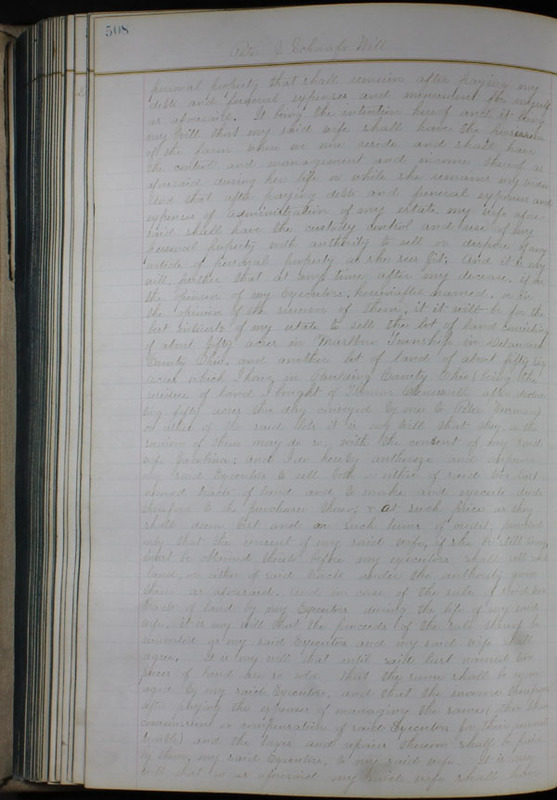 508
Will
personal property that shall remain after paying my
debts and funeral expenses and monument for myself
as aforesaid. It being the intention hereof and it being
my Will that my said wife shall have the possession
of the farm where we now reside and shall have
the control and management and income thereof as
aforesaid during her life or while she remains my widow
And that after paying debts and funeral expenses and
expenses of administration of my estate my wife afore-
said shall have the custody control and use of my
personal property with authority to sell or dispose of any
article of personal property as she sees fit. And it is my
will further that at any time after my decease, if in
the opinion of my Executors hereinafter named or in
the opinion of the survivor of them, it will be for the
best interests of my estate to sell the lot of land consisting
of about fifty acres in Marlboro Township in Delaware
County Ohio, and another lot of land of about fifty
acres which I have in Paulding County Ohio (being the
residue of land I bought of after deduct-
ing fifty acres this day conveyed by me to
or either of the said lots it is my Will that they or the
survivor of them may do so, with the consent of my said
wife and I do hereby authorize and empower
my said Executors to sell both or either of said two last
named tracts of land and to make and execute deeds
therefor to the purchaser thereof at such prices as they
shall deem best and on such terms of credit, provided
only that the consent of my said wife, if she be still living
must be obtained thereto before my executors shall sell said
land or either of said tracts under the authority given
them as aforesaid. And in case of the sale of said
tracts of land by my Executors during the life of my said
wife it is my will that the proceeds of the sale thereof be
invested as my said Executors and my said wife shall
agree. It is my will that until said last named two
pieces of land are so sold that the same shall be man-
aged by my said Executors, and that the income therefrom
after paying the expenses of managing the same
compensation of said Executors for their
and the taxes and repairs thereon shall be paid
by them, my said Executors, to my said wife. It is my
will that in as aforesaid my said wife shall have